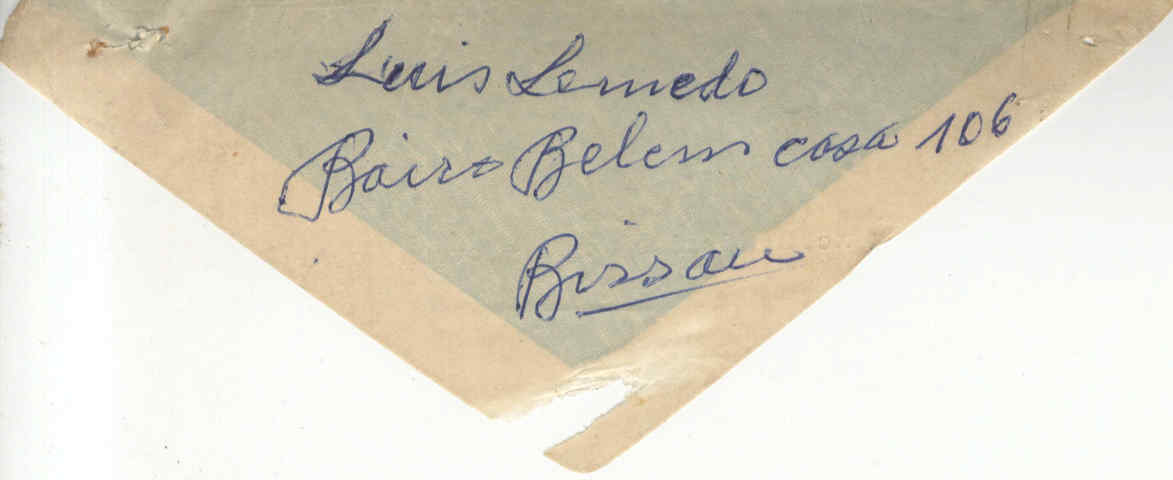 Luis Lemedo
Bairo Belem casa 106
Bissau